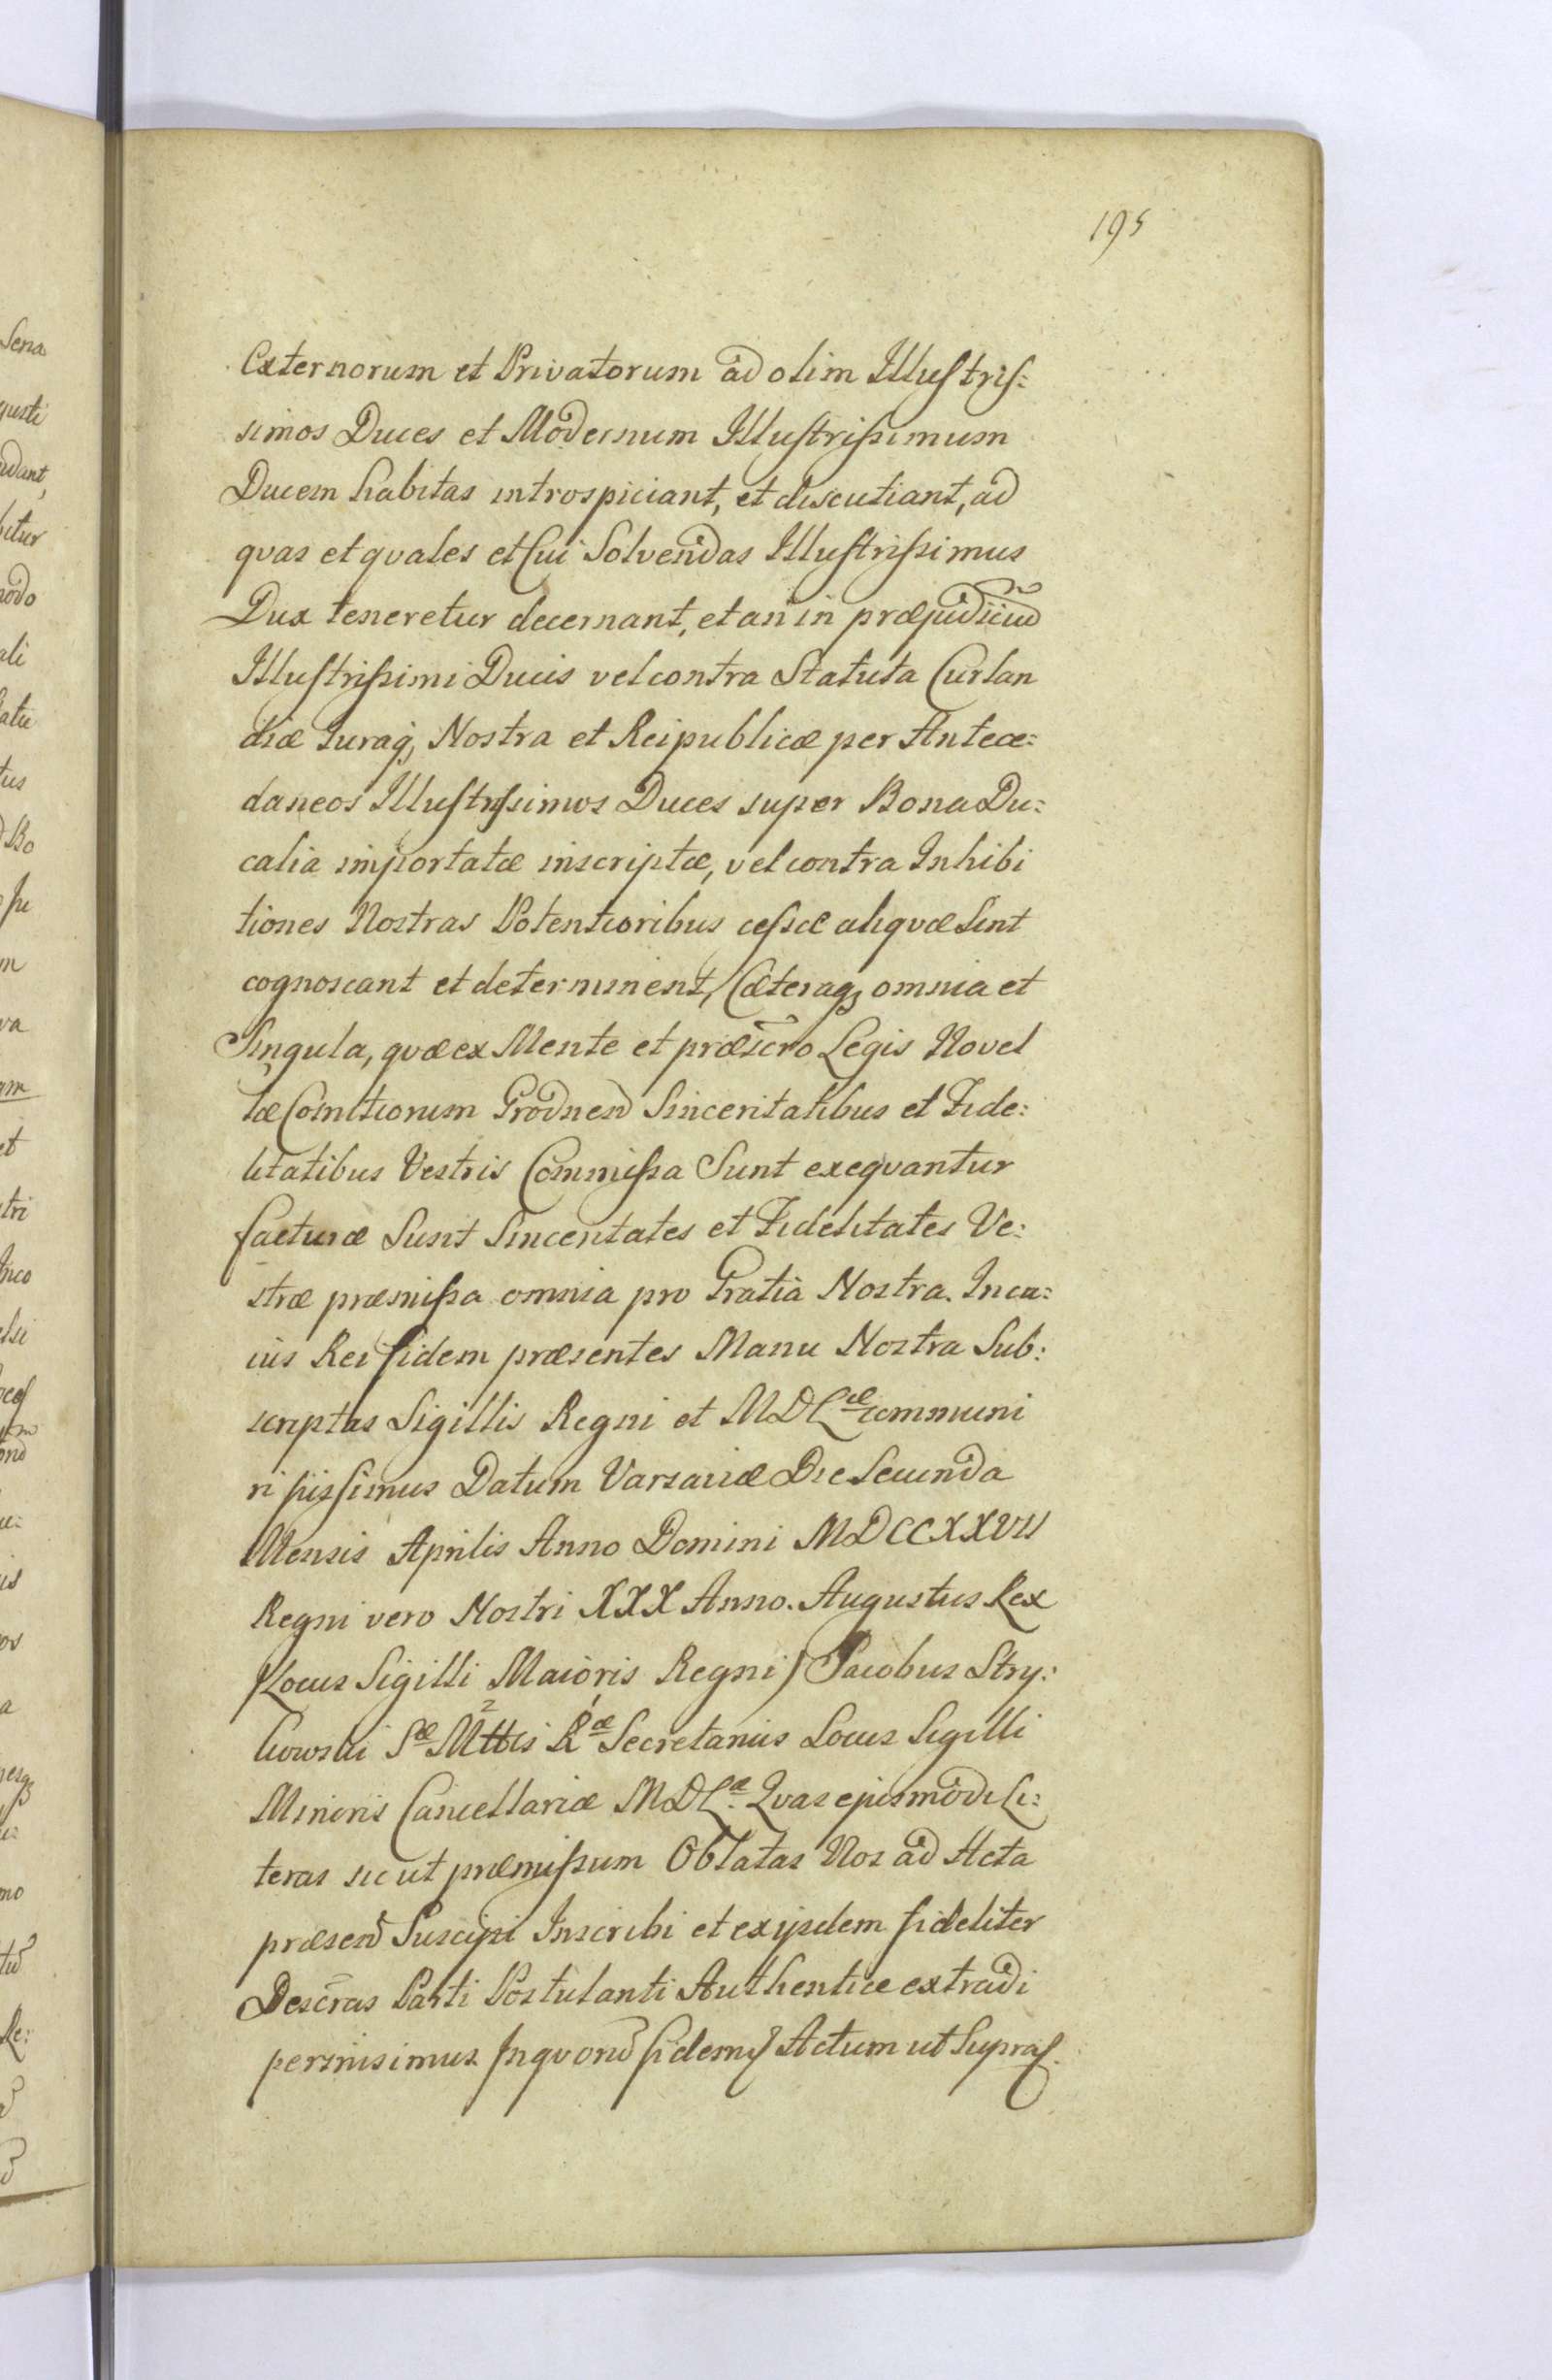 195
Externorum et Privatorum ad olim Illustris:
simos Duces et Modernum Illustrissimum
Ducem habitas introspiciant, et discutiant, ad
qvas et qvales et Cui Solvendas Illustrissimus
Dux teneretur decernant, et an in præjudiciu͂
Illustrissimi Ducis vel contra Statuta Curlan
diæ Juraq, Nostra et Reipublicæ per Antece:
daneos Illustrissimos Duces super Bona Du:
calia importatæ inscriptæ, vel contra Inhibi
tiones Nostras Potentioribus cessæ aliqvæ Sint
cognoscant et determinent, Cæteraq, omnia et
Singula, qvæ ex Mente et præscro Legis Novel
læ Comitiorum Grodnen͂ Sinceritatibus et Fide:
litatibus Vestris Commissa Sunt exeqvantur
facturæ Sunt Sinceritates et Fidelitates Ve:
stræ præmissa omnia pro Gratia Nostra. In cu:
ius Rei fidem præsentes Manu Nostra Sub:
scriptas Sigillis Regni et MDLæ communi
ri jussimus Datum Varsaviæ Die Secunda
Mensis Aprilis Anno Domini MDCCXXVII
Regni vero Nostri XXX Anno. Augustus Rex
/Locus Sigilli Maioris Regni/ Jacobus Stry:
howski Sæ Mttis Ræ Secretarius Locus Sigilli
Minoris Cancellariæ MDLæ. Qvas ejusmodi Li:
teras sic ut præmissum Oblatas Nos ad Acta
præsen͂ Suscipi Inscribi et ex ijsdem fideliter
Descr͂as Parti Postulanti Authentice extradi
permisimus In qvor͂ fidem Actum ut Supra